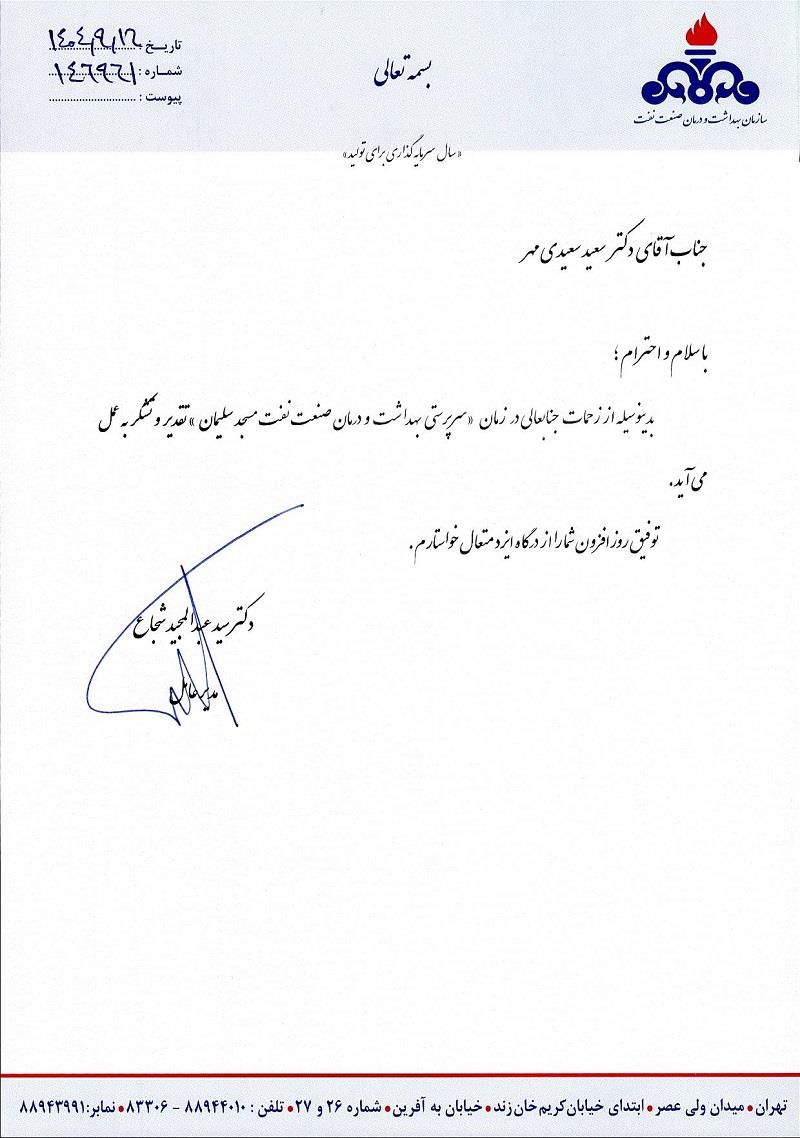 تاریخ : ۱۴۰۴/۹/۱۶
شماره : ۱۴۶۹۶۱
پیوست :
بسمه تعالی
سازمان بهداشت و درمان صنعت نفت
«سال سرمایه گذاری برای تولید»
جناب آقای دکتر سعید سعیدی مهر
با سلام و احترام ؛
بدینوسیله از زحمات جنابعالی در زمان «سرپرستی بهداشت و درمان صنعت نفت مسجد سلیمان» تقدیر و تشکر به عمل
می آید.
توفیق روز افزون شما را از درگاه ایزد متعال خواستارم.
دکتر سید عبدالمجید شجاع
مدیر عامل
تهران • میدان ولی عصر • ابتدای خیابان کریم خان زند • خیابان به آفرین • شماره ۲۶ و ۲۷ • تلفن : ۸۸۹۴۴۰۱۰ - ۸۳۳۰۶ • نمابر:۸۸۹۴۳۹۹۱